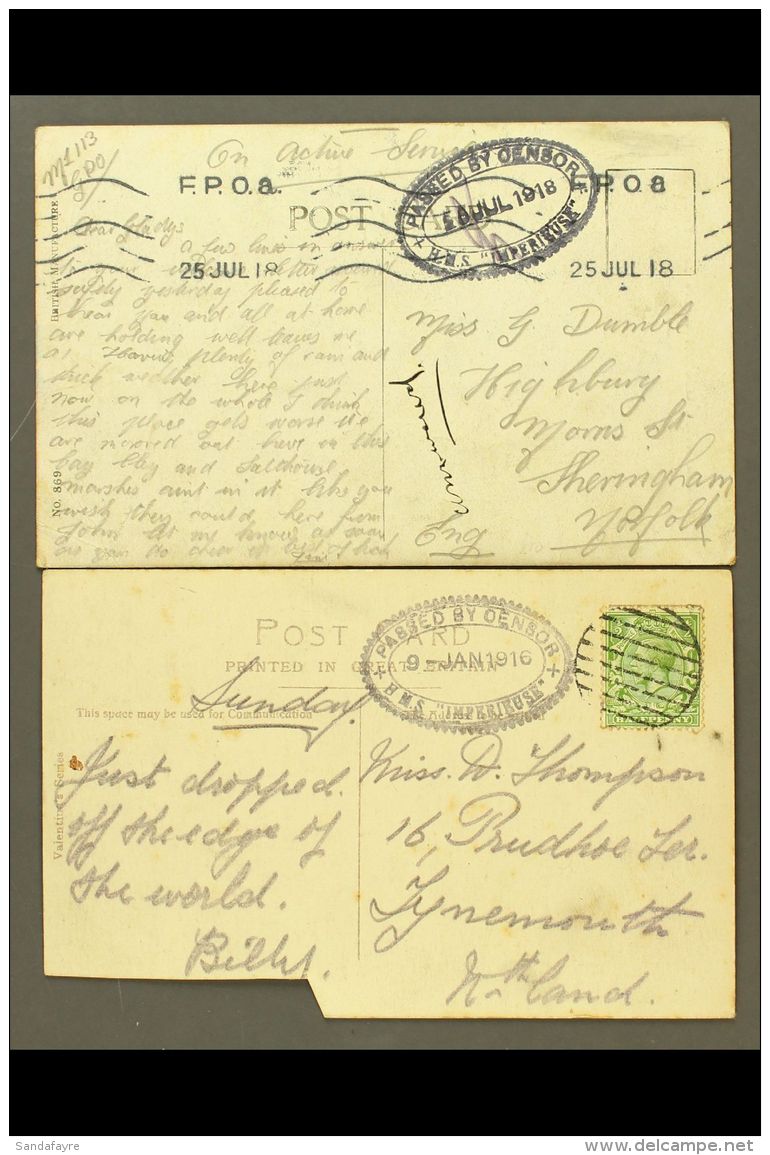 M2 113
GPO/
On Active Service
F.P.O.a.
POST CARD
PASSED BY CENSOR
JUL 1918
H.M.S. "IMPERIEUSE"
F.P.O a
25 JUL 18
25 JUL 18
BRITISH MANUFACTURE
No. 869
Dear Gladys
a few lines in answer
to your letter
safely yesterday pleased to
hear you and all at home
are holding well leaves me
Having plenty of rain and
thick weather here just
now on the whole I think
this place gets worse we
are moored out here in this
bay Cley and Salthouse
marshes aint in it
wish they could here from
John let me know as soon
as you do
Miss G Dumble
Highbury
Morris St
Sheringham
Norfolk
Eng
POST CARD
PRINTED IN GREAT BRITAIN
This space may be used for Communication
The Address to be
PASSED BY CENSOR
9-JAN 1916
H.M.S. "IMPERIEUSE"
HALFPENNY
Valentine's Series
Sunday
Just dropped
off the edge of
the world.
Billy.
Miss. D. Thompson
16, Prudhoe Ter.
Tynemouth
Nthland.
Sandafayre
delcampe.net